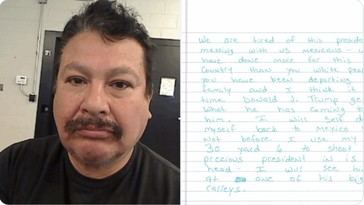 We are tired of this preside
messing with us Mexicans
have done more for this
Country than you white peo
you have been deporting
family and I think it
time Donald J. Trump ge
what he has coming t
him. I will self d
myself back to Mexico
Not before I use my
30 yard 6 to shoot
precious president in is
head I will see hi
at one of his big
ralleys.